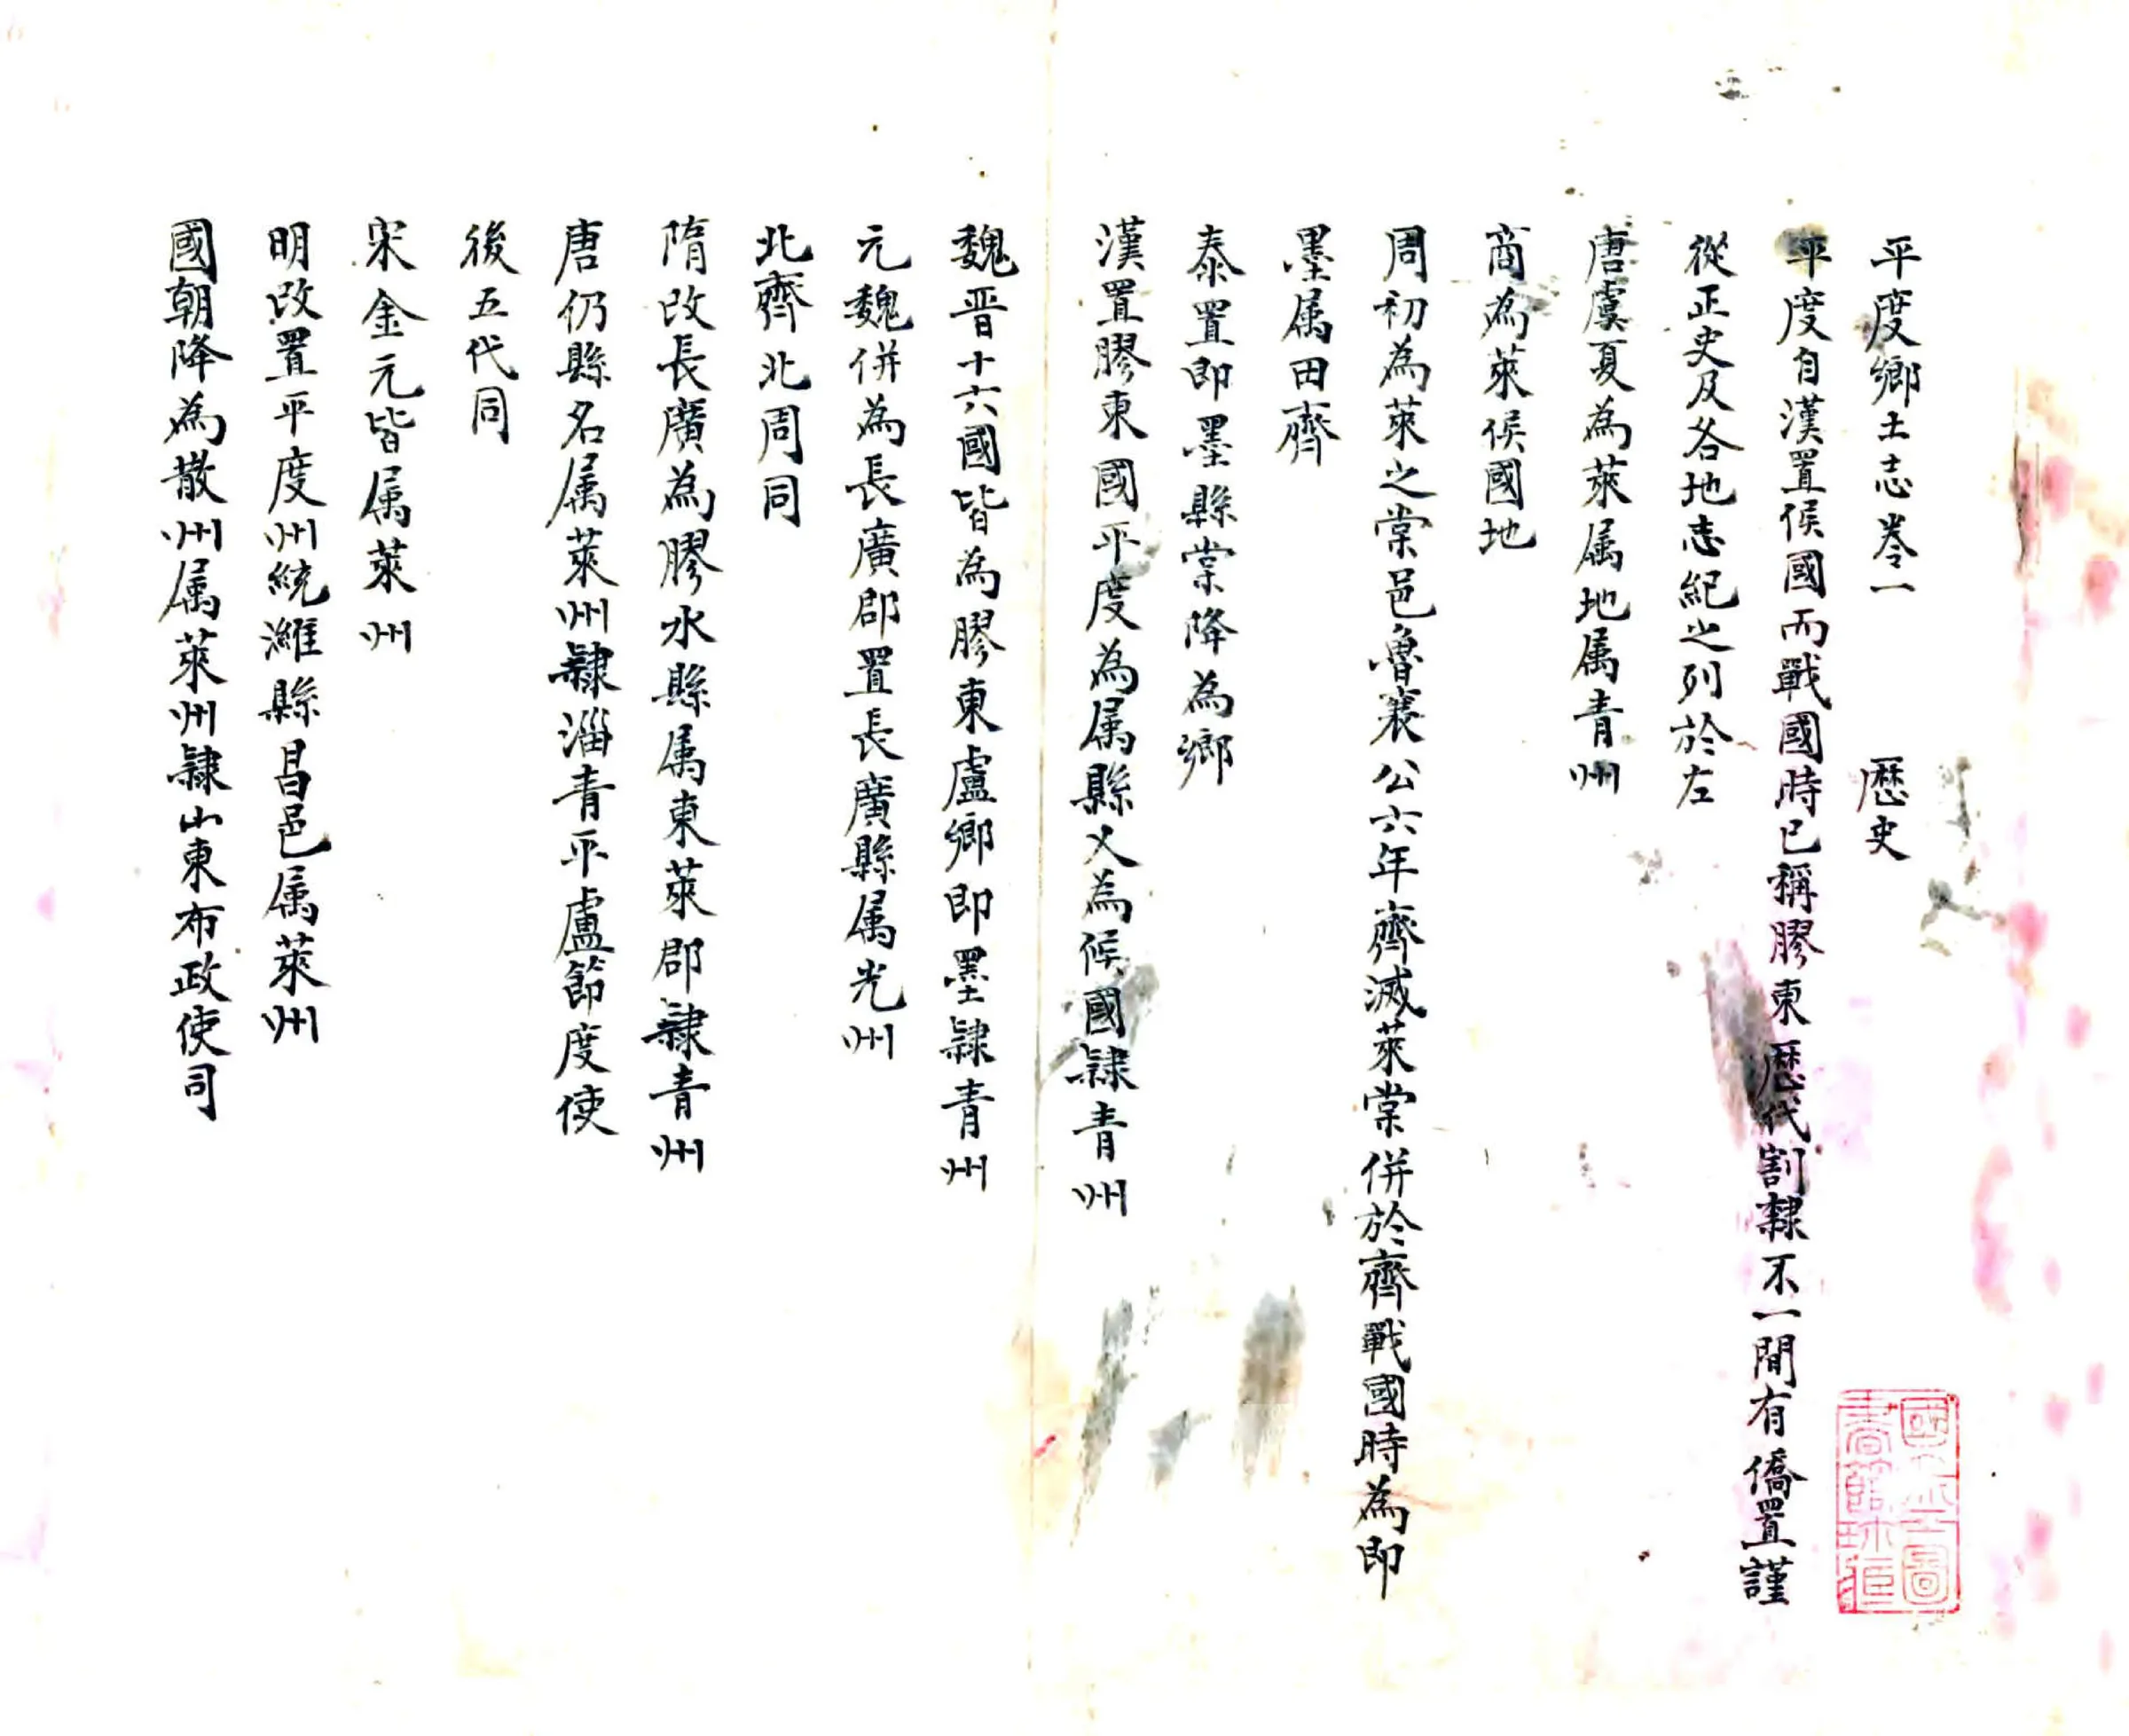 平度鄉土志卷一　歷史
平度自漢置侯國而戰國時已稱膠東歷代割隸不一間有僑置謹
從正史及各地志紀之列於左
唐虞夏為萊属地属青州
商為萊侯國地
周初為萊之棠邑魯襄公六年齊滅萊棠併於齊戰國時為即
墨属田齊
秦置即墨縣棠降為鄉
漢置膠東國平度為属縣又為侯國隸青州
魏晋十六國皆為膠東盧鄉即墨隸青州
元魏併為長廣郡置長廣縣属光州
北齊北周同
隋改長廣為膠水縣属東萊郡隸青州
唐仍縣名属萊州隸淄青平盧節度使
後五代同
宋金元皆属萊州
明改置平度州統濰縣昌邑属萊州
國朝降為散州属萊州隸山東布政使司
國立圖
書館珍藏